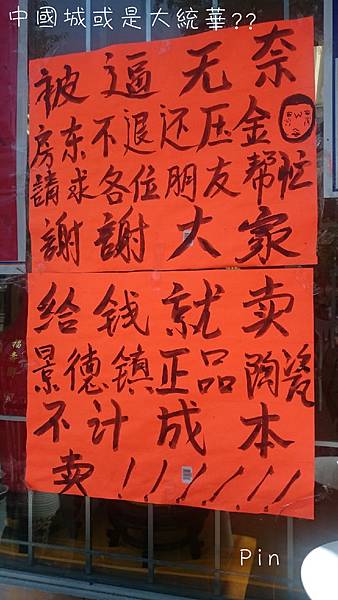 中國城或是大統華??
被逼无奈
房东不退还压金
請求各位朋友帮忙
謝謝大家
给钱就卖
景德镇正品陶瓷
不计成本
卖!!!!!!!
Pin